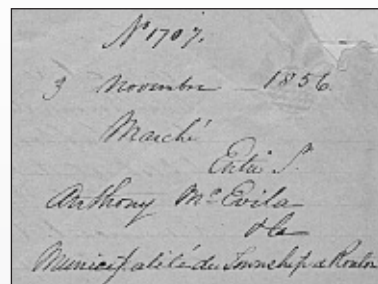 No 1707.
3 Novembre 1856.
Marché
Entre Sr.
Anthony McEvila
& la
Municipalité du Township de Roxton